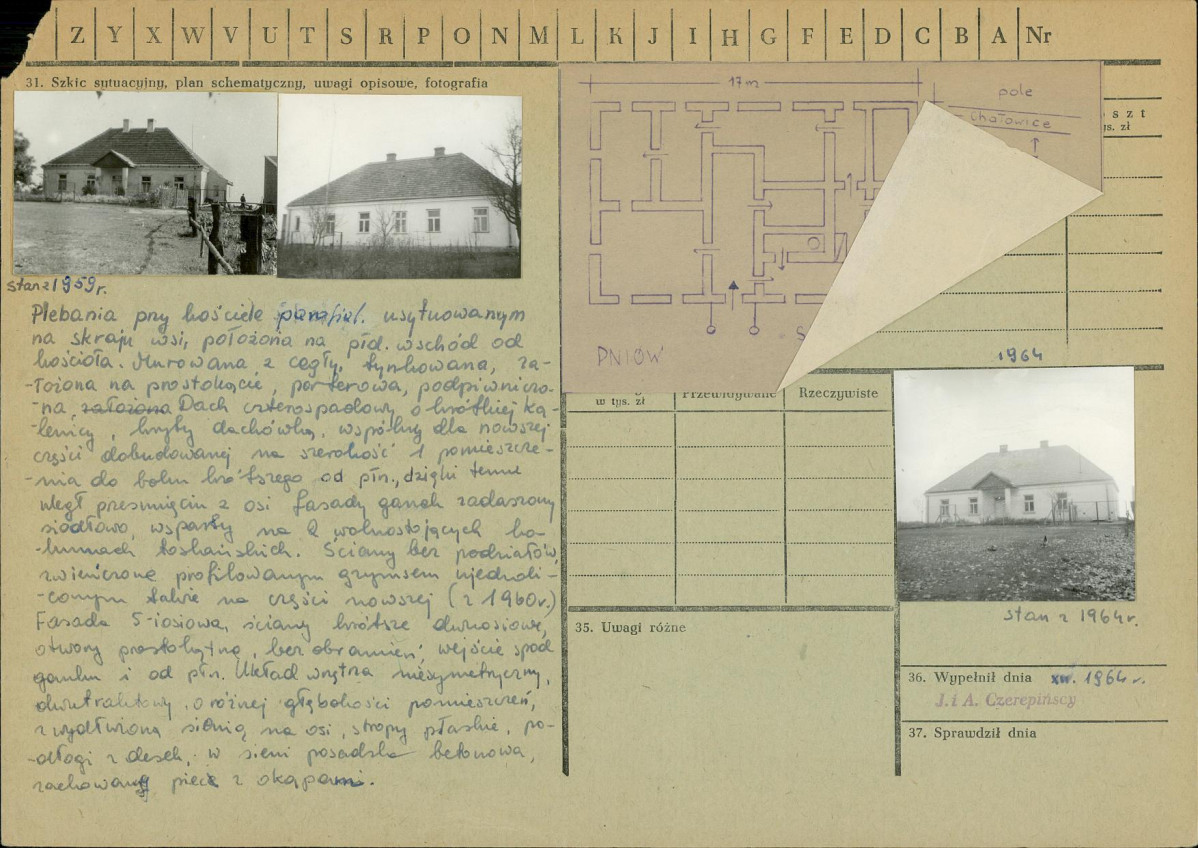 Z Y X W V U T S R P O N M L K J I H G F E D C B A Nr
31. Szkic sytuacyjny, plan schematyczny, uwagi opisowe, fotografia
stan z 1959 r.
Plebania przy kościele parafial. usytuowanym
na skraju wsi, położona na płd. wschód od
kościoła. Murowana z cegły, tynkowana, za-
-łożona na prostokącie, parterowa, podpiwniczo-
-na, założona Dach czterospadowy o krótkiej ka-
lenicy, kryty dachówką, wspólny dla nowszej
części dobudowanej na szerokość 1 pomieszcze-
-nia do boku krótszego od płn., dzięki temu
uległ przesunięciu z osi fasady ganek zadaszony
siodłowo, wsparty na 2 wolnostojących ko-
-lumnach toskańskich. Ściany bez podziałów,
zwieńczone profilowanym gzymsem ujednoli-
-conym także na części nowszej (z 1960r.)
Fasada 5-iosiowa, ściany krótsze dwuosiowe,
otwory prostokątne, bez obramień, wejście spod
ganku i od płn. Układ wnętrza niesymetryczny,
dwutraktowy, o różnej głębokości pomieszczeń,
z wydłużoną sienią na osi, stropy płaskie, po-
-dłogi z desek, w sieni posadzka betonowa,
zachowany piece z okapami.
17 m
pole
Chałowice
PNIÓW
S
oszt
ys. zł
w tys. zł
Przewidywane
Rzeczywiste
1964
stan z 1964r.
35. Uwagi różne
36. Wypełnił dnia xw. 1964 r.
J. i A. Czerepińscy
37. Sprawdził dnia